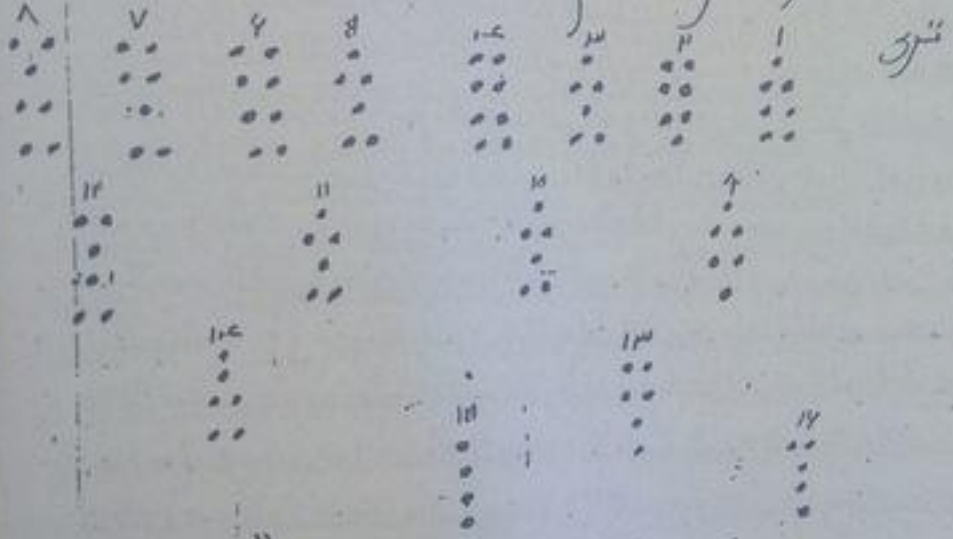 ۱ ۲ ۳ ۴ ۵ ۶ ۷ ۸
۹ ۱۰ ۱۱ ۱۲
۱۳ ۱۴
۱۶ ۱۵